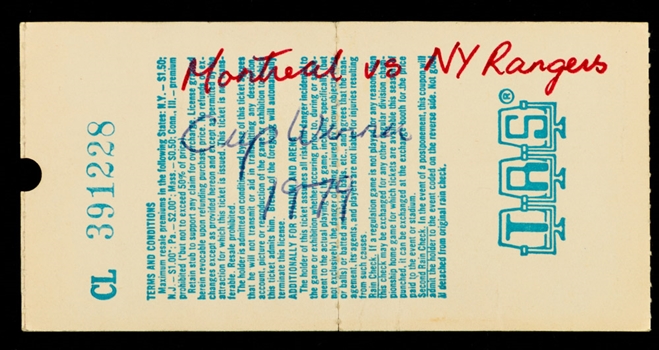 Montreal vs NY Rangers
Cup Winner
1979
CL 391228
TERMS AND CONDITIONS
Maximum resale premiums in the following States: N.Y. – $1.50;
N.J. – $1.00; Pa. – $2.00; Mass. – $0.50; Conn., Ill. – premium
prohibited (but not to exceed 50% of price).
Retain stub to support any claim for overcharge. License granted
herein revocable upon refunding purchase price. No refunds or ex-
changes except as provided herein and except as permitted by the
attraction for which this ticket is issued. This ticket is not trans-
ferable. Resale prohibited.
The holder admitted on condition, and by use of this ticket agrees
that he will not transmit or aid in transmitting any description,
account, picture or reproduction of the game or exhibition to which
this ticket admits him. Breach of the foregoing will automatically
terminate this license.
ADDITIONALLY FOR STADIUM AND ARENA
The holder of this ticket assumes all risk and danger incidental to
the game or exhibition, whether occurring prior to, during or subse-
quent to the actual playing of the game, including specifically (but
not exclusively) the danger of being injured by thrown objects (bats
or balls) or batted balls, etc., and agrees that the man-
agement, its agents, and players are not liable for injuries resulting
from such causes.
Rain Check. If a regulation game is not played for any reason,
this check may be exchanged for any other regular division cham-
pionship home game for which tickets are available this season. If
punched, it can be exchanged at the exchange booth for the price
paid to the event or stadium.
Second Rain Check. In the event of a postponement, this coupon will
admit the holder to the event coded on the reverse side. Not good
if detached from original rain check.
TRS®